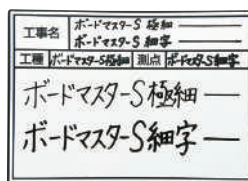 工事名 ボードマスターS 極細
ボードマスターS 細字
工種 ボードマスターS極細 測点 ボードマスターS細字
ボードマスターS 極細
ボードマスターS 細字